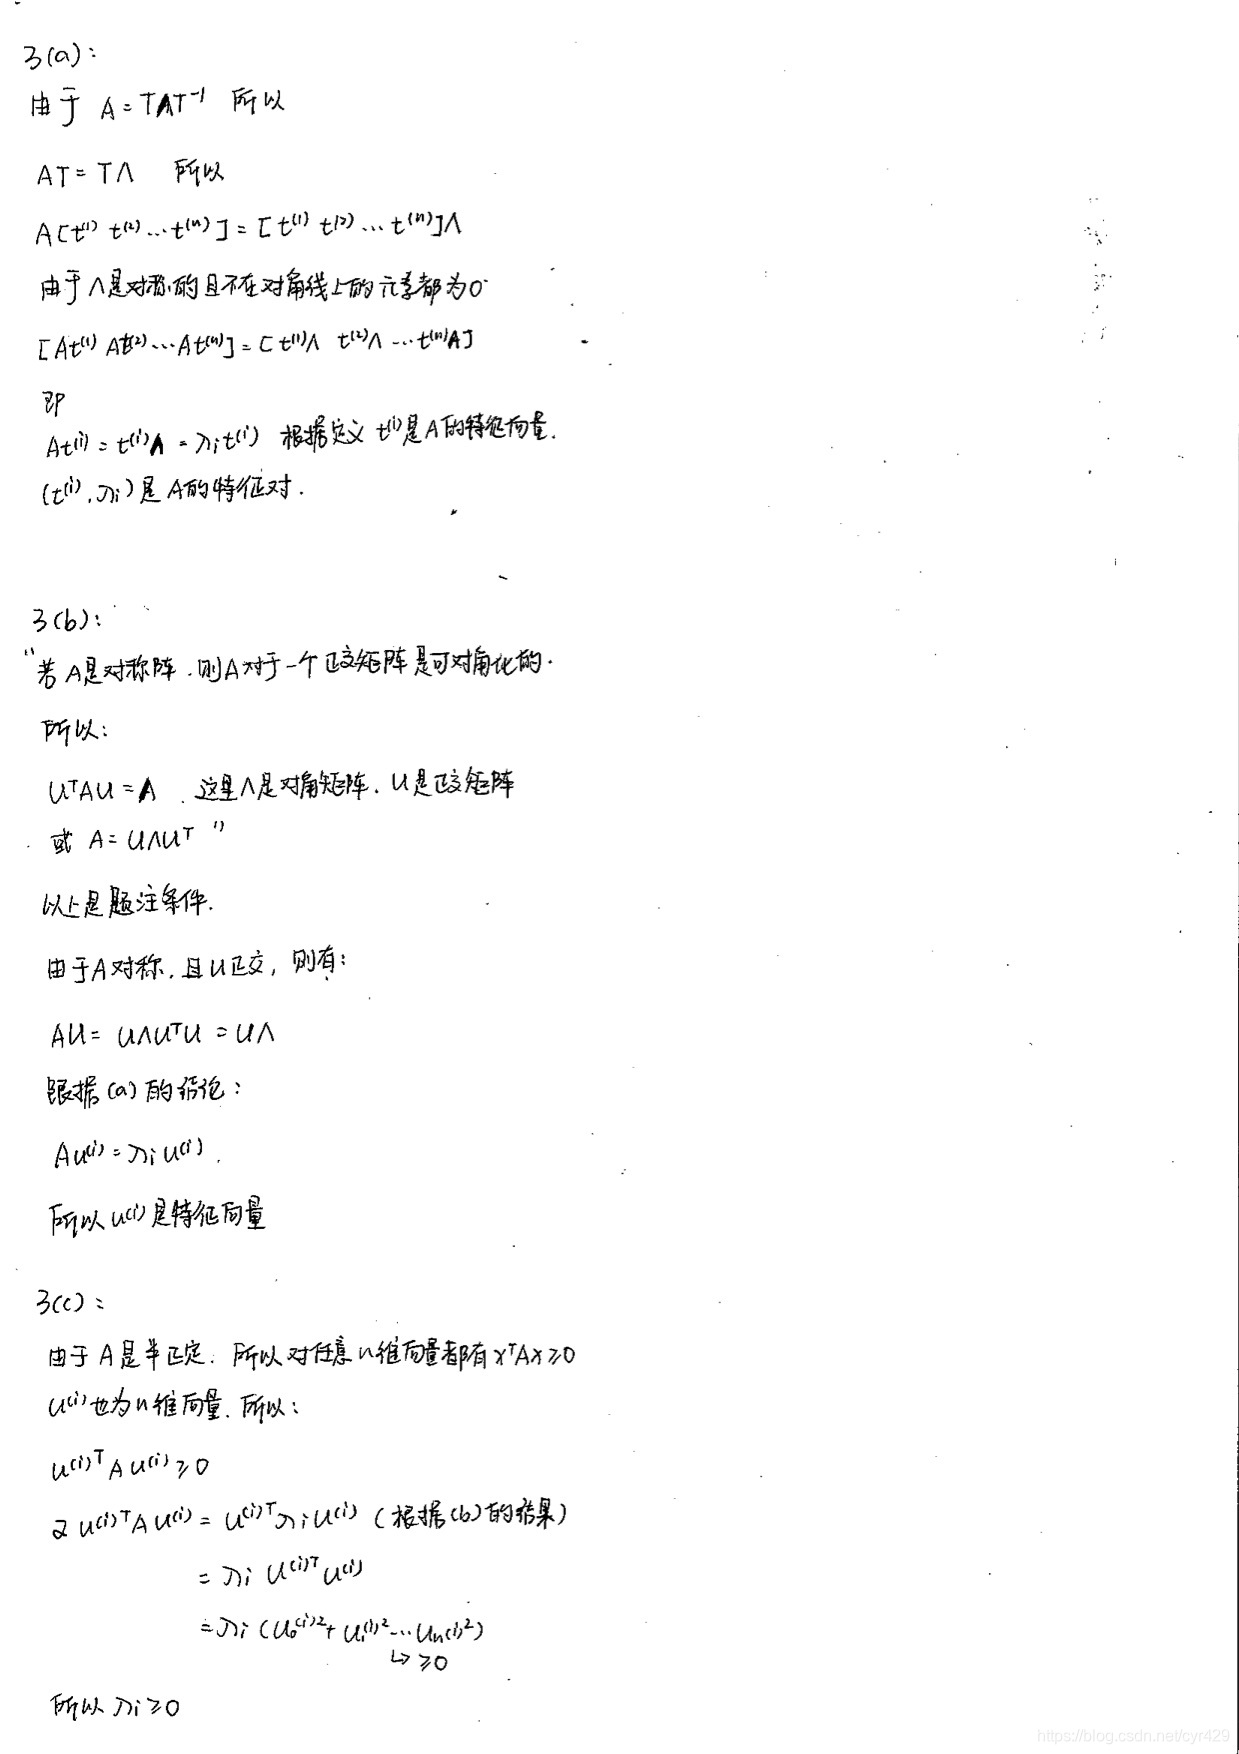 3(a):
由于 A = TΛT⁻¹ 所以
AT = TΛ 所以
A[t⁽¹⁾ t⁽²⁾ … t⁽ⁿ⁾] = [t⁽¹⁾ t⁽²⁾ … t⁽ⁿ⁾]Λ
由于Λ是对称的且不在对角线上的元素都为0
[At⁽¹⁾ At⁽²⁾ … At⁽ⁿ⁾] = [t⁽¹⁾Λ t⁽²⁾Λ … t⁽ⁿ⁾Λ]
即
At⁽ⁱ⁾ = t⁽ⁱ⁾Λ = λᵢt⁽ⁱ⁾ 根据定义 t⁽ⁱ⁾是A的特征向量.
(t⁽ⁱ⁾, λᵢ)是A的特征对.
3(b):
"若A是对称阵.则A对于一个正交矩阵是可对角化的.
所以:
UᵀAU = Λ. 这里Λ是对角矩阵. U是正交矩阵
或 A = UΛUᵀ"
以上是题注条件.
由于A对称.且U正交, 则有:
AU = UΛUᵀU = UΛ
根据(a)的结论:
Au⁽ⁱ⁾ = λᵢu⁽ⁱ⁾.
所以u⁽ⁱ⁾是特征向量
3(c):
由于A是半正定. 所以对任意n维向量都有xᵀAx≥0
u⁽ⁱ⁾也为n维向量. 所以:
u⁽ⁱ⁾ᵀAu⁽ⁱ⁾≥0
又u⁽ⁱ⁾ᵀAu⁽ⁱ⁾ = u⁽ⁱ⁾ᵀλᵢu⁽ⁱ⁾ (根据(b)的结果)
= λᵢu⁽ⁱ⁾ᵀu⁽ⁱ⁾
= λᵢ(u₀⁽ⁱ⁾² + u₁⁽ⁱ⁾² … uₙ⁽ⁱ⁾²)
↳ ≥0
所以λᵢ≥0
https://blog.csdn.net/cyr429